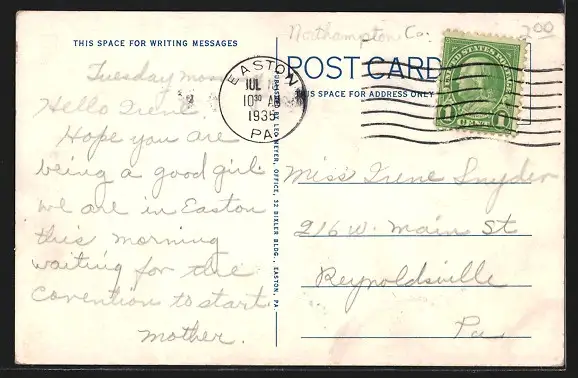 Northampton Co. 2.00
THIS SPACE FOR WRITING MESSAGES
POST CARD
THIS SPACE FOR ADDRESS ONLY
EASTON
JUL
10 30 A
1935
PA
UNITED STATES POSTAGE
1 CENT 1
PUBLISHED BY LEO MEYER, OFFICE, 32 BIXLER BLDG., EASTON, PA.
Tuesday morn
Hello Irene.
Hope you are
being a good girl
we are in Easton
this morning
waiting for the
convention to start
mother.
Miss Irene Snyder
216 W. Main St
Reynoldsville
Pa